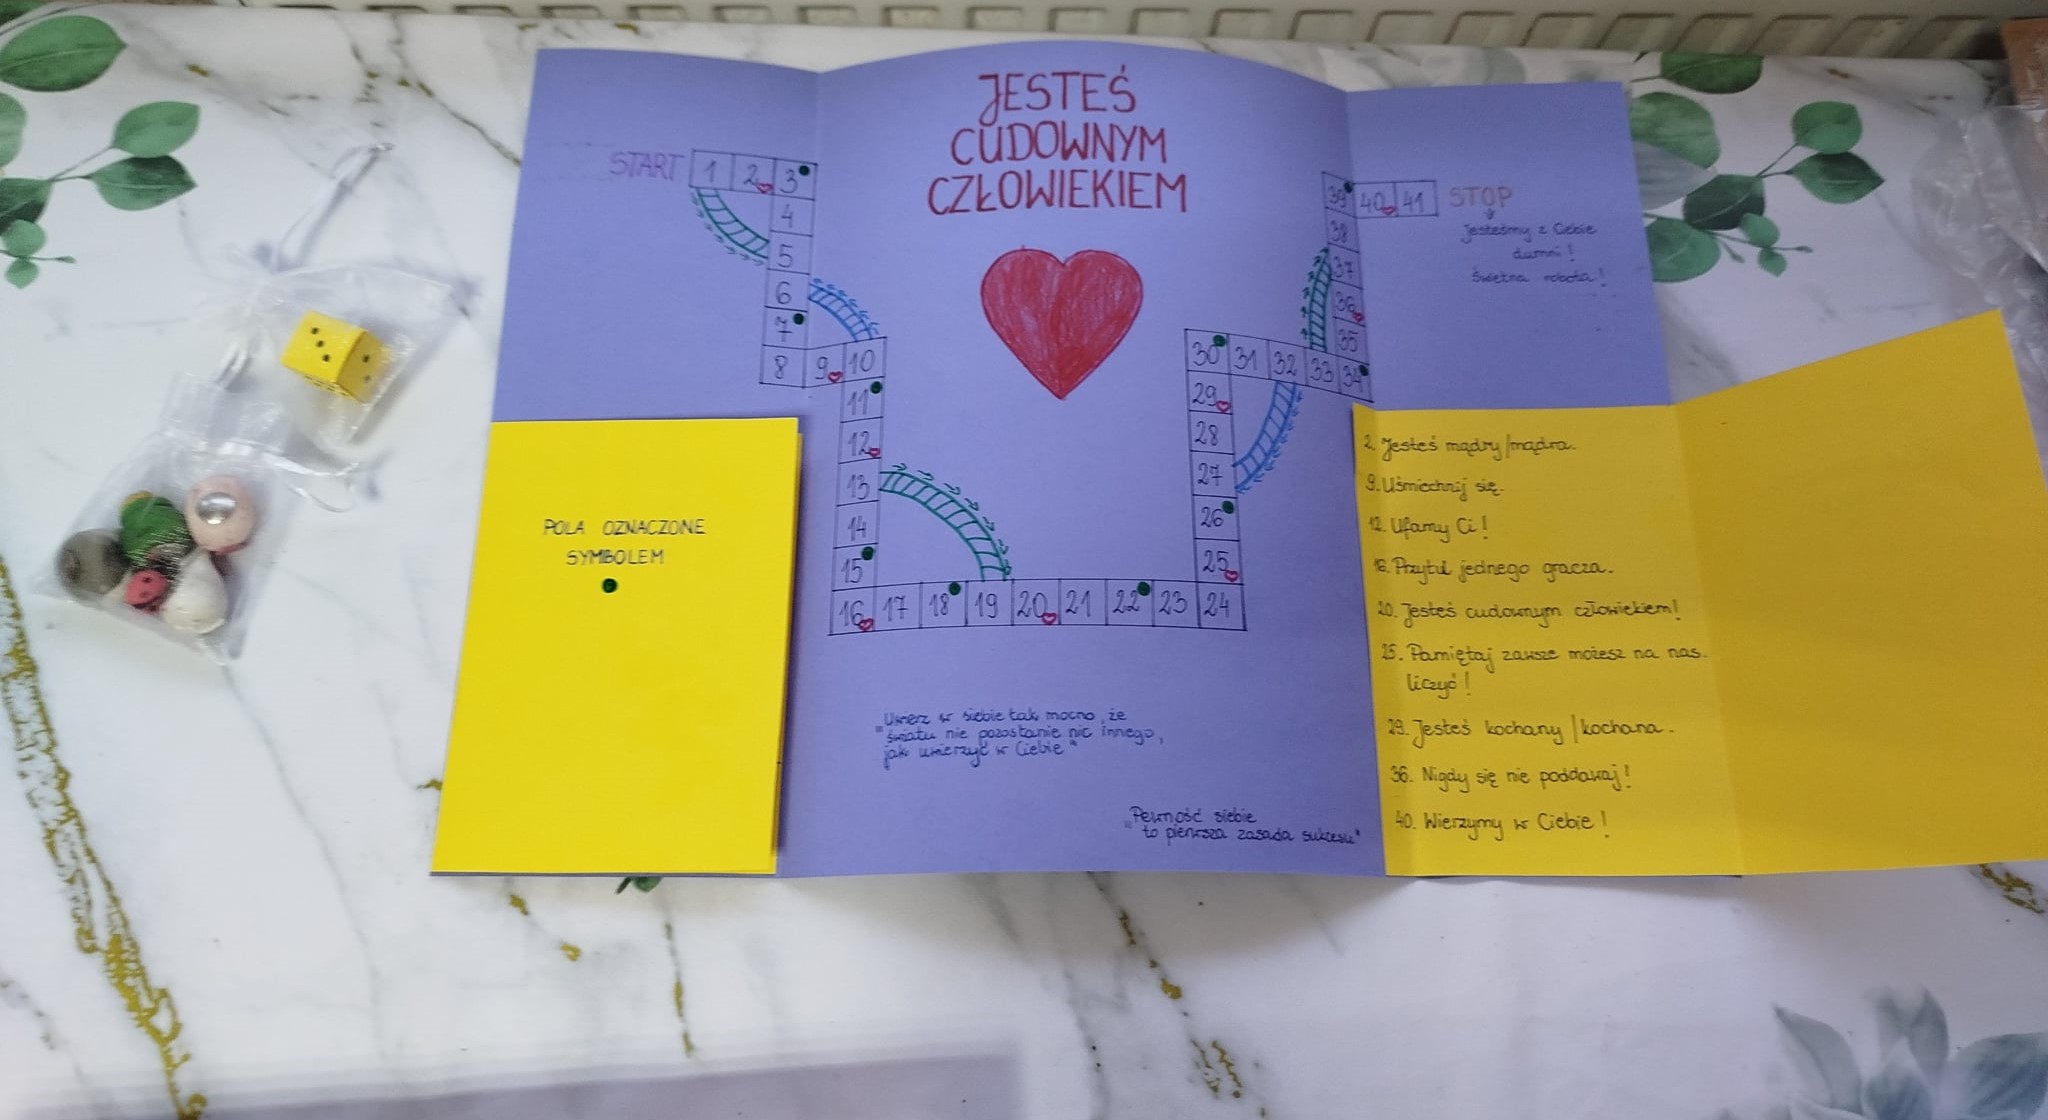 JESTEŚ
CUDOWNYM
CZŁOWIEKIEM
START
1 2 3
4
5
6
7
8 9 10
11
12
13
14
15
16 17 18 19 20 21 22 23 24
25
26
27
28
29
30 31 32 33 34
35
36
37
38
39 40 41
STOP
Jesteśmy z Ciebie
dumni!
Świetna robota!
POLA OZNACZONE
SYMBOLEM
2. Jesteś mądry/mądra.
9. Uśmiechnij się.
12. Ufamy Ci!
16. Przytul jednego gracza.
20. Jesteś cudownym człowiekiem!
25. Pamiętaj zawsze możesz na nas
liczyć!
29. Jesteś kochany/kochana.
36. Nigdy się nie poddawaj!
40. Wierzymy w Ciebie!
Uwierz w siebie tak mocno, że
"światu nie pozostanie nic innego,
jak uwierzyć w Ciebie"
Pewność siebie
"to pierwsza zasada sukcesu"